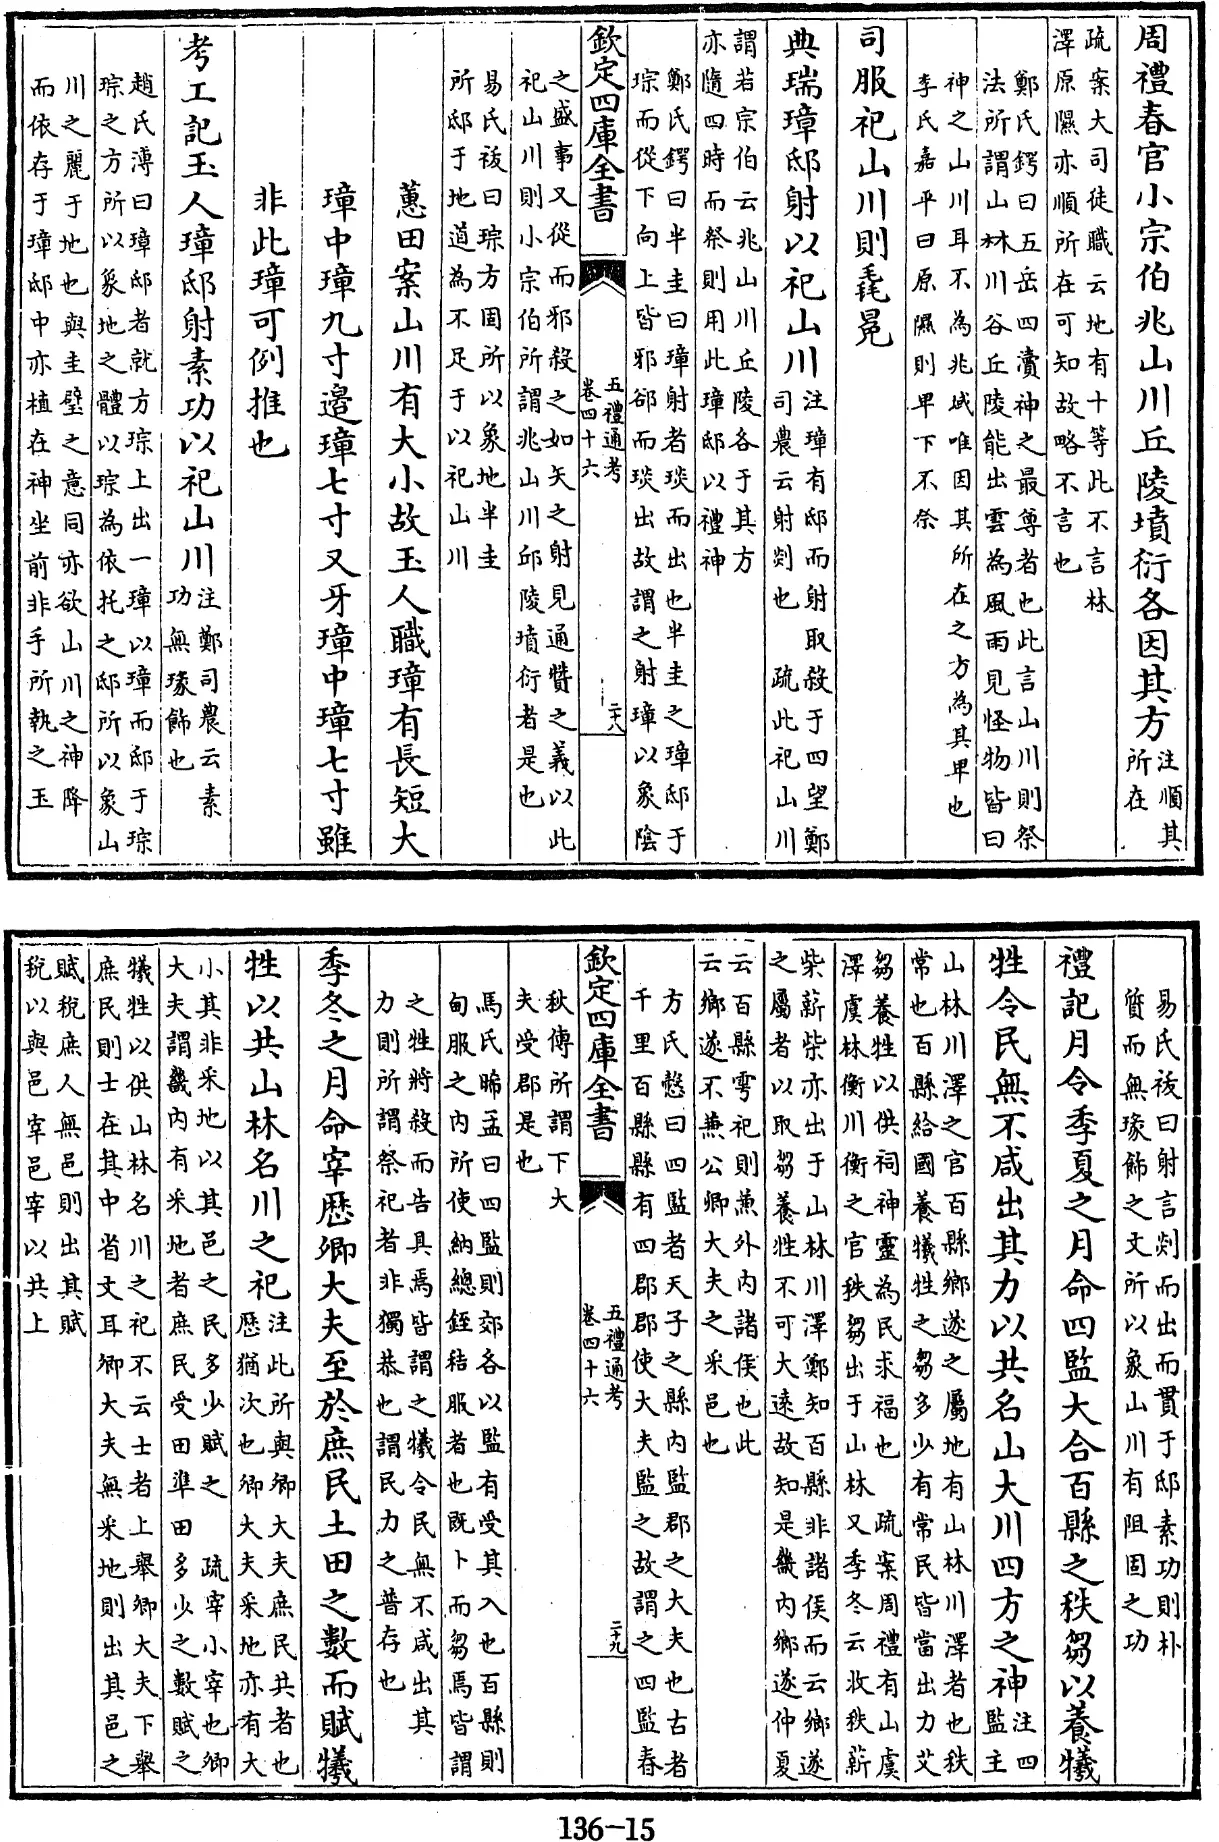 周禮春官小宗伯兆山川丘陵墳衍各因其方注順其
所在
疏案大司徒職云地有十等此不言林
澤原隰亦順所在可知故略不言也
鄭氏鍔曰五岳四瀆神之最尊者也此言山川則祭
法所謂山林川谷丘陵能出雲為風雨見怪物皆曰
神之山川耳不為兆域唯因其所在之方為其卑也
李氏嘉平曰原隰則卑下不祭
司服祀山川則毳冕
典瑞璋邸射以祀山川注璋有邸而射取殺于四望鄭
司農云射剡也 疏此祀山川
謂若宗伯云兆山川丘陵各于其方
亦隨四時而祭則用此璋邸以禮神
鄭氏鍔曰半圭曰璋射者琰而出也半圭之璋邸于
琮而從下向上皆邪郤而琰出故謂之射璋以象陰
欽定四庫全書
五禮通考
卷四十六
二十八
之盛事又從而邪殺之如矢之射見通贊之義以此
祀山川則小宗伯所謂兆山川邱陵墳衍者是也
易氏祓曰琮方固所以象地半圭
所邸于地道為不足于以祀山川
蕙田案山川有大小故玉人職璋有長短大
璋中璋九寸邊璋七寸又牙璋中璋七寸雖
非此璋可例推也
考工記玉人璋邸射素功以祀山川注鄭司農云素
功無瑑飾也
趙氏溥曰璋邸者就方琮上出一璋以璋而邸于琮
琮之方所以象地之體以琮為依托之邸所以象山
川之麗于地也與圭璧之意同亦欲山川之神降
而依存于璋邸中亦植在神坐前非手所執之玉
易氏祓曰射言剡而出而貫于邸素功則朴
質而無瑑飾之文所以象山川有阻固之功
禮記月令季夏之月命四監大合百縣之秩芻以養犧
牲令民無不咸出其力以共名山大川四方之神注四
監主
山林川澤之官百縣鄉遂之屬地有山林川澤者也秩
常也百縣給國養犧牲之芻多少有常民皆當出力艾
芻養牲以供祠神靈為民求福也 疏案周禮有山虞
澤虞林衡川衡之官秩芻出于山林又季冬云收秩薪
柴薪柴亦出于山林川澤鄭知百縣非諸侯而云鄉遂
之屬者以取芻養牲不可大遠故知是畿內鄉遂仲夏
云百縣雩祀則兼外內諸侯也此
云鄉遂不兼公卿大夫之采邑也
方氏慤曰四監者天子之縣內監郡之大夫也古者
千里百縣縣有四郡郡使大夫監之故謂之四監春
欽定四庫全書
五禮通考
卷四十六
二十九
秋傳所謂下大
夫受郡是也
馬氏晞孟曰四監則郊各以監有受其入也百縣則
甸服之內所使納總銍秸服者也既卜而芻焉皆謂
之牲將殺而告具焉皆謂之犧令民無不咸出其
力則所謂祭祀者非獨恭也謂民力之普存也
季冬之月命宰歷卿大夫至於庶民土田之數而賦犧
牲以共山林名川之祀注此所與卿大夫庶民共者也
歷猶次也卿大夫采地亦有大
小其非采地以其邑之民多少賦之 疏宰小宰也卿
大夫謂畿內有采地者庶民受田準田多少之數賦之
犧牲以供山林名川之祀不云士者上舉卿大夫下舉
庶民則士在其中省文耳卿大夫無采地則出其邑之
賦稅庶人無邑則出其賦
稅以與邑宰邑宰以共上
136-15